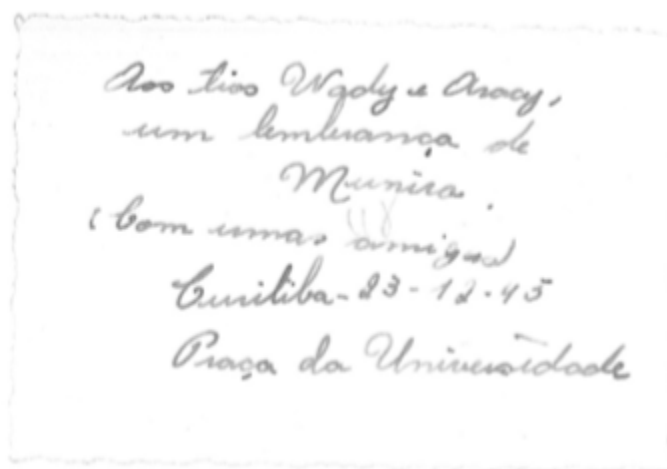 Aos tios Wady e Aracy,
um lembrança de
Munira.
(Com umas amigas)
Curitiba - 23 - 12 - 45
Praça da Universidade